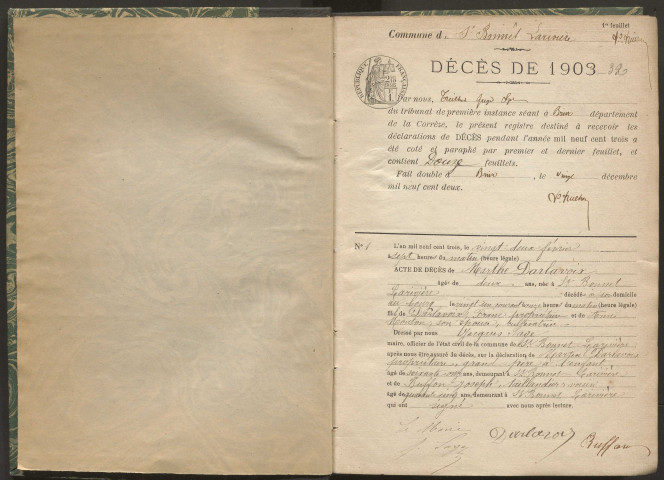 1er feuillet
Commune d St Bonnet Larivière
RÉPUBLIQUE FRANÇAISE
DÉCÈS DE 1903
Par nous,
du tribunal de première instance séant à Brive département
de la Corrèze, le présent registre destiné à recevoir les
déclarations de DÉCÈS pendant l'année mil neuf cent trois a
été coté et paraphé par premier et dernier feuillet, et
contient Douze feuillets.
Fait double à Brive, le onze décembre
mil neuf cent deux.
N° 1 L'an mil neuf cent trois, le vingt deux février
à sept heures du matin (heure légale)
ACTE DE DÉCÈS de Marthe Darlavoix
âgée de deux ans, née à St Bonnet
Larivière décédée à son domicile
au bourg, le vingt un courant heures du (heure légale)
fille de Darlavoix propriétaire et de
son épouse, cultivatrice
Dressé par nous Jacques
maire, officier de l'état civil de la commune de St Bonnet Larivière
après nous être assuré du décès, sur la déclaration de Darlavoix
propriétaire, grand père à l'enfant
âgé de soixante ans, demeurant à St Bonnet Larivière
et de Buffon Joseph, voisin
âgé de quarante cinq ans, demeurant à St Bonnet Larivière
qui ont signé avec nous après lecture.
Le Maire
Darlavoix
Buffon